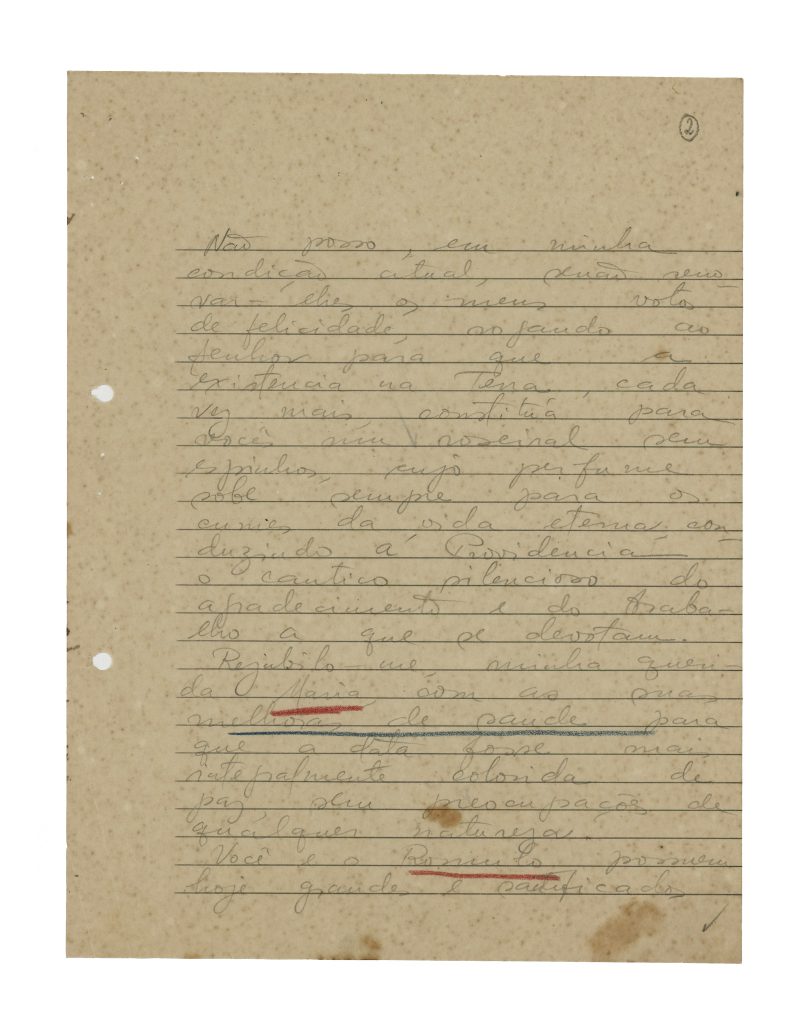 2
Não posso, em minha
condição atual, senão reno-
var-lhes os meus votos
de felicidade, rogando ao
Senhor para que a
existencia na Terra, cada
vez mais, constitua para
vocês um roseiral sem
espinhos, cujo perfume
sobe sempre para os
cumes da vida eterna, con-
duzindo á Providencia
o cantico silencioso do
agradecimento e do traba-
lho a que se devotam.
Rejubilo-me, minha queri-
da Maria com as suas
melhoras de saude para
que a data fosse mais
integralmente colorida de
paz sem preocupações de
qualquer natureza.
Você e o Romulo possuem
hoje grandes e santificados